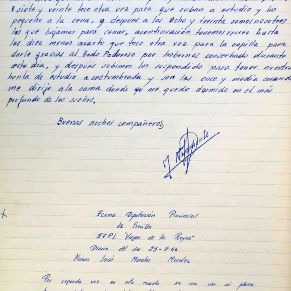 y siete y veinte toco otra vez para que suban a estudio y los
pequeños a la cena, y despues a las ocho y treinta somos nosotros
los que bajamos para cenar, acontinuación tenemos recreo hasta
las diez menos cuarto que toco otra vez para la capilla para
darle gracias al todo Poderoso por habernos conservado durante
este día, y despues subimos los suspendidos para tener nuestra
horita de estudio acostumbrada y son las once y media cuando
me dirijo a la cama donde yo me quedo dormido en el más
profundo de los sueños.
Buenas noches compañeros,
Excma Diputación Provincial
de Sevilla
I.F.P.I. "Virgen de los Reyes"
Diario del dia 29-11-66
Alumno José Morales Morales
Por segunda vez en este mundo es una con mi pluma